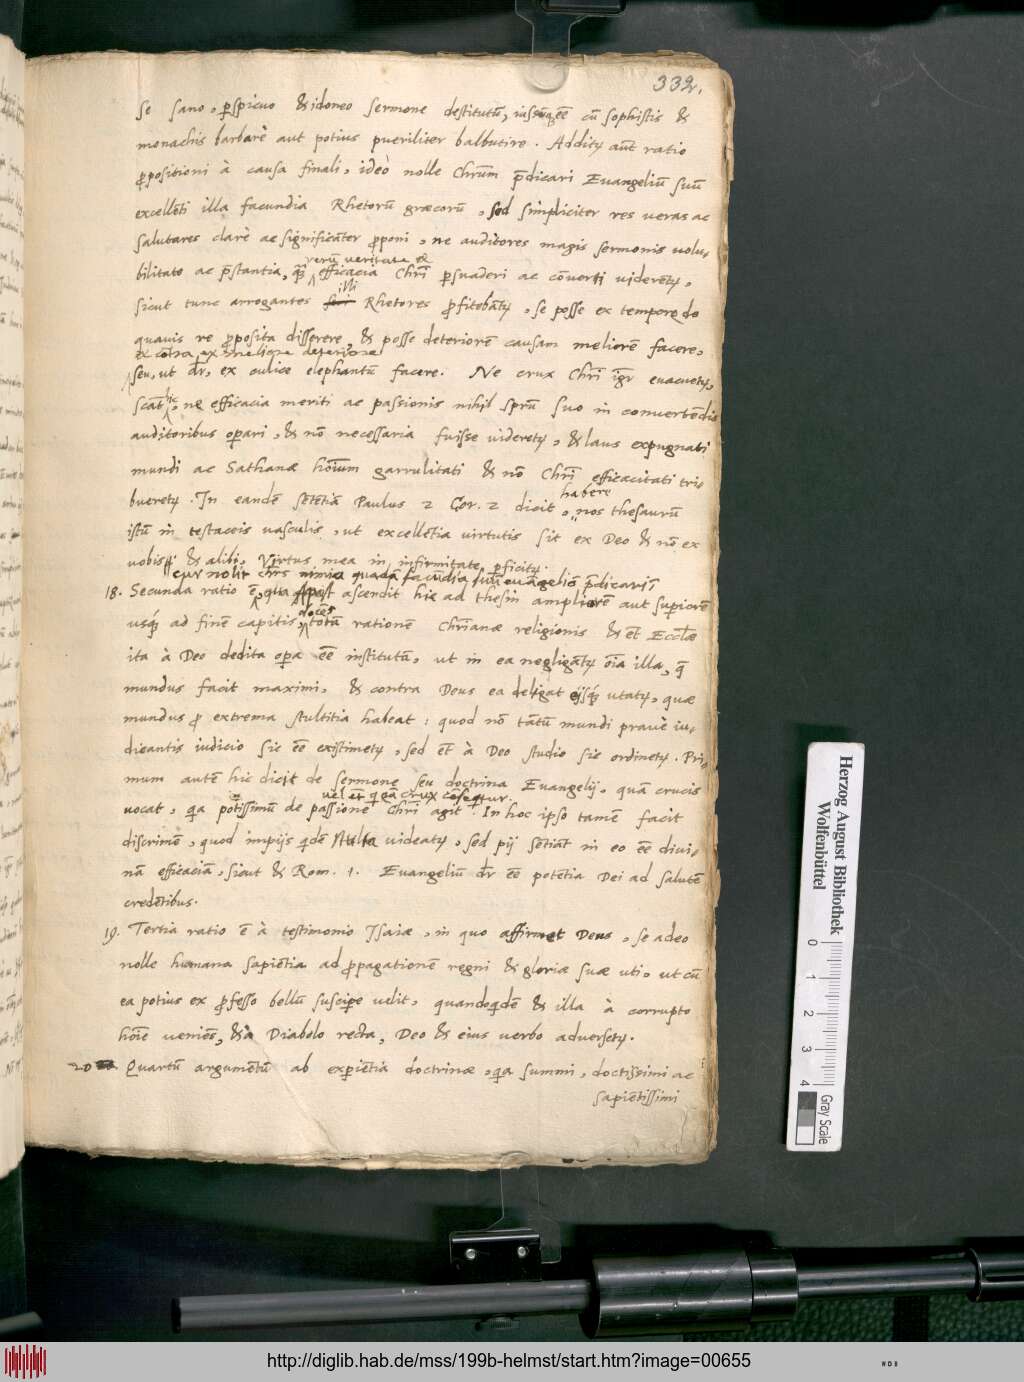 332r.
se sano, ꝑspicuo & idoneo sermone destitutū, cū sophistis &
monachis barbarè aut potius pueriliter balbutire. Additꝭ aūt ratio
ꝓpositioni à causa finali, ideò nolle Chrūm p̄dicari Euangeliū suū
excellēti illa facundia Rhetorū græcorū, sed simpliciter res ueras ac
salutares clarè ac significāter ꝓponi, ne auditores magis sermonis uolu-
rerū veritate et
bilitate ac p̄stantia, q̄ efficacia Chrī ꝑsuaderi ac cōuerti uiderētꝭ,
illi
sicut tunc arrogantes Rhetores ꝓfitebātꝭ, se posse ex tempore de
quauis re ꝓposita disserere, & posse deteriorē causam meliorē facere,
et cōtra ex meliore deteriorē
seu, ut dr̄, ex culice elephantū facere. Ne crux Chrī igr̄ euacuetꝭ,
hc
scat, ne efficacia meriti ac passionis nihil sprū suo in conuertēdis
auditoribus oꝑari, & nō necessaria fuisse uideretꝭ, & laus expugnati
mundi ac Sathanæ hōium garrulitati & nō Chrī efficacitati tri-
bueretꝭ. In eandē sētētiā Paulus 2 Cor. 2 dicit,
habere
nos thesaurū
istū in testaceis uasculis, ut excellētia uirtutis sit ex Deo & nō ex
uobis, & alibi, Virtus mea in infirmitate ꝑficitꝭ.
cur nolit chrs nimia quadā facūdia suū euāgeliō p̄dicari,
18. Secunda ratio ē, qia post ascendit hic ad thesin ampliorē aut suꝑiorē
doces
usq́ ad finē capitis, totū rationē Chrīanæ religionis & ēt Eccl̄æ
ita à Deo dedita oꝑa ēē institutā, ut in ea negligātꝭ ōia illa, q̄
mundus facit maximi, & contra Deus ea deligat ijsq́ utatꝭ, quæ
mundus ꝓ extrema stultitia habeat: quod nō tātū mundi prauè iu-
dicantis iudicio sic ēē existimetꝭ, sed ēt à Deo studio sic ordinetꝭ. Pri-
mum autē hic dicit de sermone seu doctrina Euangelij, quā crucis
vel ēt q̄ crux cōseqtur.
uocat, qa potissimū de passione Chrī agit. In hoc ipso tamē facit
discrimē, quod impijs qdē stulta uideatꝭ, sed pij sētiāt in eo ēē diui-
nā efficaciā, sicut & Rom. 1. Euangeliū dr̄ ēē potētia Dei ad salutē
credētibus.
19. Tertia ratio ē à testimonio Isaiæ, in quo affirmet Deus, se adeo
nolle humana sapiētia ad ꝓpagationē regni & gloriæ suæ uti, ut cū
ea potius ex ꝓfesso bellū susciꝑe uelit, quandoqdē & illa à corrupto
hōie ueniēs, & à Diabolo recta, Deo & eius uerbo aduersetꝭ.
20 Quartū argumētū ab exꝑiētia doctrinæ, qa summi, doctissimi ac
sapiētissimi
Herzog August Bibliothek
Wolfenbüttel
0 1 2 3 4
Gray Scale
http://diglib.hab.de/mss/199b-helmst/start.htm?image=00655
WDB